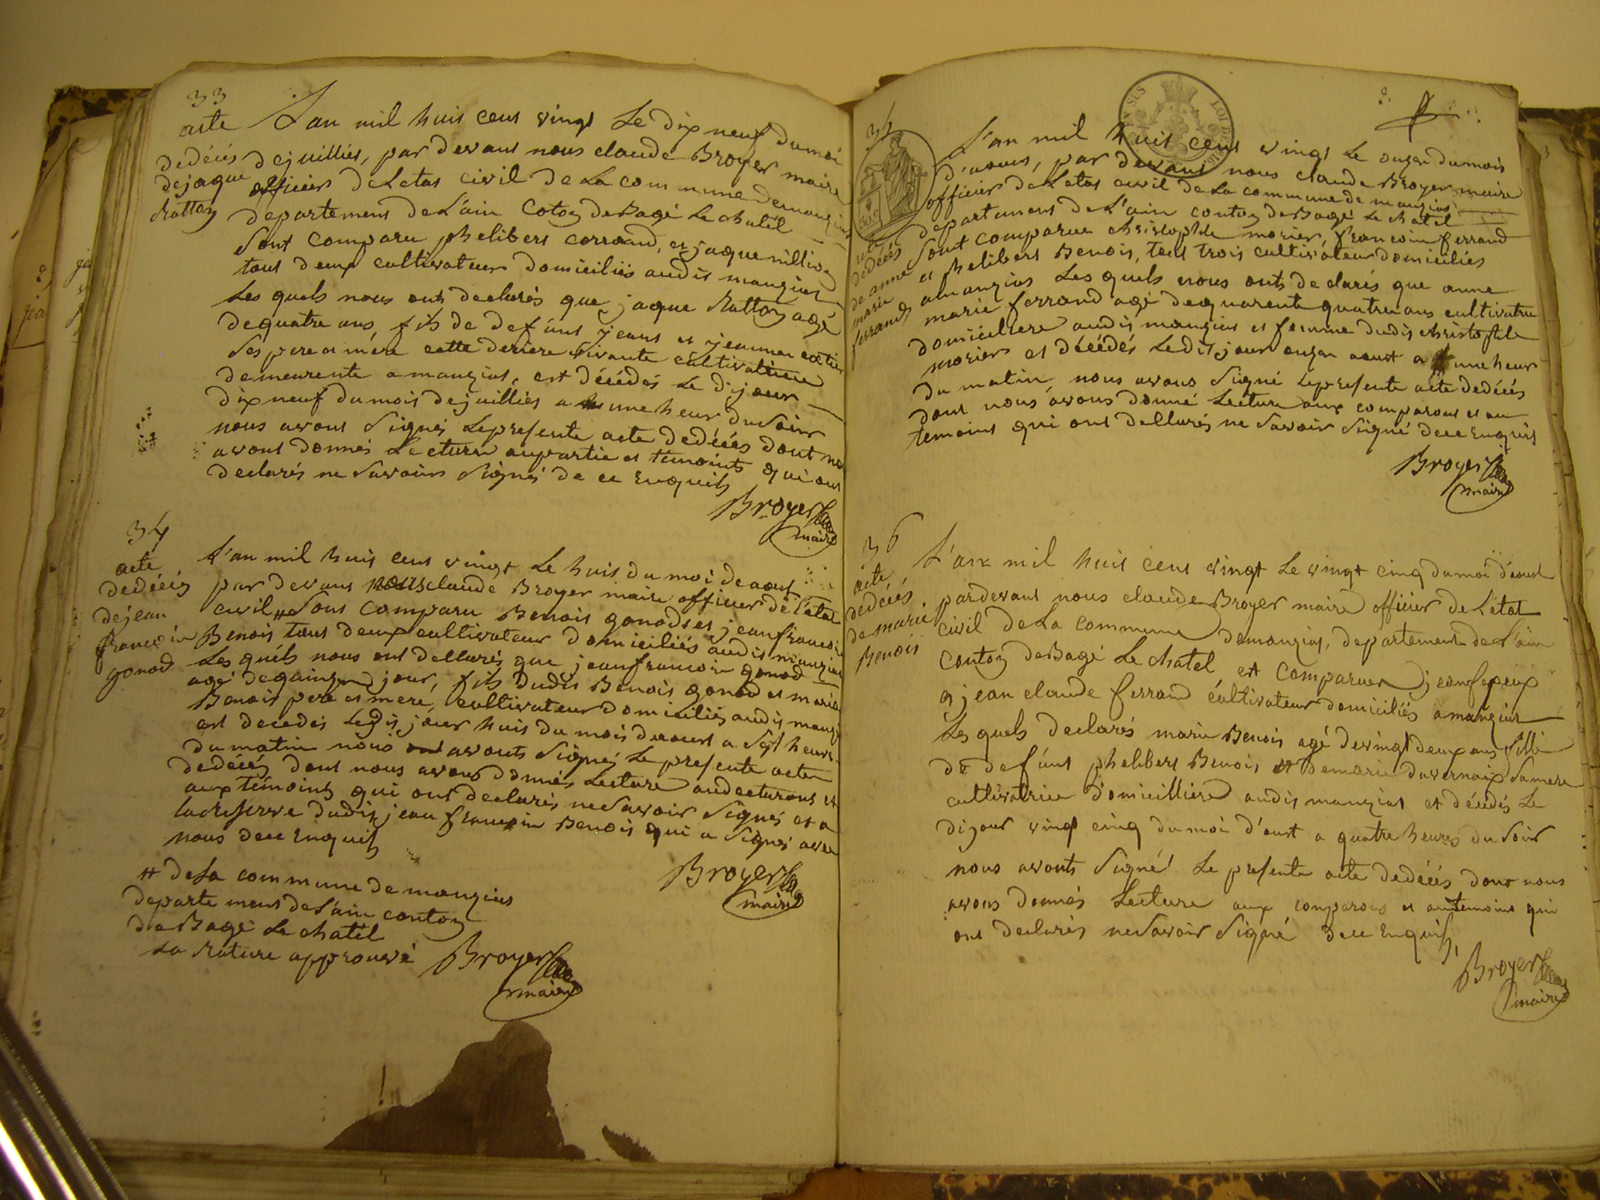 33
acte
dedécés
dejaque
Rattoy
L'an mil huit cens vingt Le dix neuf du moi
dejuilliés, par devans nous claude Broyer maire
officier de Letas civil de La commune demanzias
departemens de L'ain Cotoy de Bagé Le chatel
Sont comparu phelibers corrand, et jaque million
tous deux cultivateur domiciliés audis manzias
Les quels nous ont declarés que jaque Rattoy agé
dequatre ans, fils de defúns jeans et jeanne
Ses pere et mére cette deriere vivante cultivatrice
demeurente a manzias, est décédés Le dijour
dix neuf du mois dejuilliés a une heur du Soir
nous avons Signés Lepresente acte dedécés dont nous
avons donnés Lecture aupartie et témoints qui ont
declarés ne Savoirs Signés de ce Enquils
Broyer
maire
34
acte
dedécés
dejean
francoin
gonod
L'an mil huis cens vingt Le huis du moi de aout
par devans nous claude Broyer maire officier de L'etat
civil # Sons comparu Benois gonod et jeanfrancoin
Benois tous deux cultivateur domiciliés audis manzias
Les quéls nous ont dellarés que jeanfrancoin gonod
agé de quinze jour, fils dudis Benois gonod et marie
Benois pere et mere, cultivateur domiciliés audis manzias
est decedés Ledis jour huis du mois deaoust a Sept heurs
du matin nous avonts Signés Le presente acte
dedécés dont nous avons donnés Lecture audecturans et
aux témoints qui ont declarés ne Savoir Signés et a
la reserve dudis jean francoin Benois qui a Signés avec
nous dece Enquils
Broyer
maire
# de La commune de manzias
departemens de L'ain contoy
de Bagé Le chatel
La Rature approuvé
Broyer
maire
35
acte
dedécés
de anne
marie
ferrand
L'an mil huit cens vingt Le onzen du mois
d'aouts, par devans nous claude Broyer maire
officier de Letas civil de La commune de manzias
departamens de L'ain contoy de Bagé Le chatel
Sont comparue christophle morier, francoin ferrand
et phelibers Benois, tous trois cultivateur domiciliés
amanzias Les quels nous onts declarés que anne
marie ferrand agé de quarente quatre ans cultivatrice
domiciliere audis manzias et femme dudis christofle
morier est décédés Ledis jour onzen aoust a une heur
du matin, nous avons Signé Lepresente acte dedécés
dont nous avons donné Lecture aux comparons et au
temoins qui ont dellarés ne Savoir Signé dece Enquis
Broyer
maire
36
acte
dedécés
de marie
Benois
L'an mil huis cens vingt Le vingt cinq du moi d'aout
pardevant nous claude Broyer maire officier de L'etat
civil de La commune demanzias, departement de L'ain
Contoy de Bagé Le chatel est Comparuer jean
et jean claude ferrand cultivateur domiciliés amanzias
Les quels declarés marie Benois agé de vingt deux ans fille
de defúns phelibers Benois et demarie duvernaix Samere
cultivatrice domicilliere audis manzias et décédés Le
dijour vingt cinq du moi d'aout a quatre heures du Soir
nous avonts Signé Le presente acte dedécés dont nous
avons donnés Lecture aux comparons et autemoins qui
ont declarés ne Savoir Signé dece Enquis,
Broyer
maire